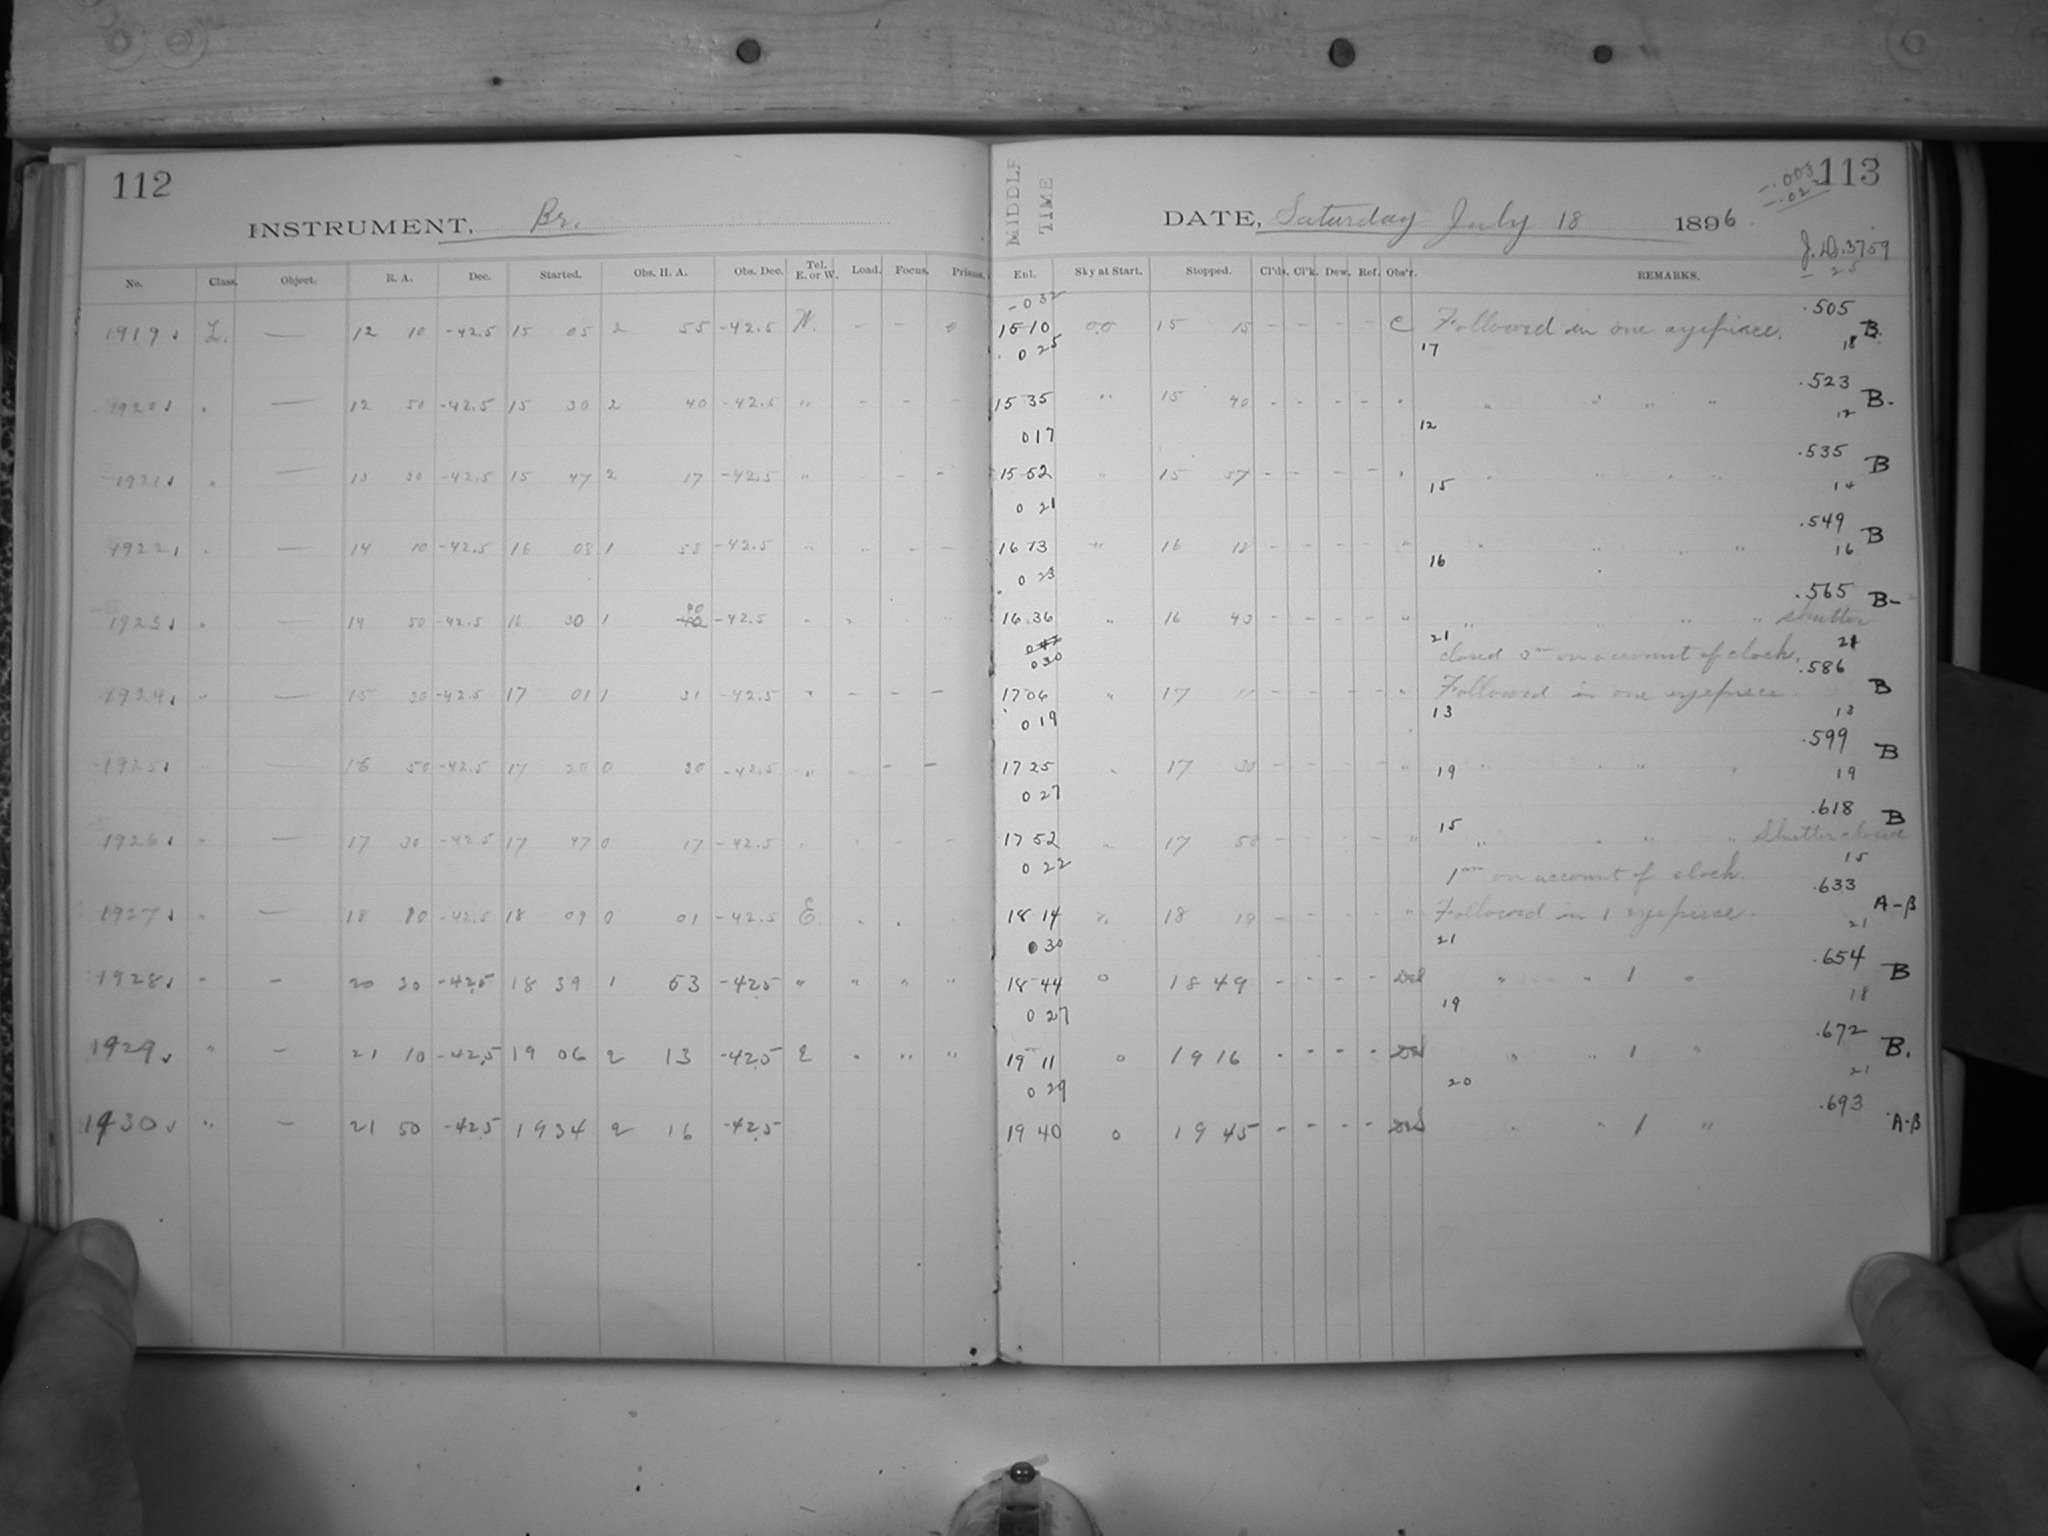 112
INSTRUMENT, Br.
No. Class. Object. R. A. Dec. Started. Obs. H. A. Obs. Dec. Tel. E. or W. Load. Focus. Prisms.
1919 L. — 12 10 -42.5 15 05 2 55 -42.5 W. - - 0
1920 " — 12 50 -42.5 15 30 2 40 -42.5 " - - -
1921 " — 13 30 -42.5 15 47 2 17 -42.5 " - - -
1922 " — 14 10 -42.5 16 08 1 58 -42.5 " " - -
1923 " — 14 50 -42.5 16 30 1 40 -42.5 " "
1924 " — 15 30 -42.5 17 01 1 31 -42.5 " - - -
1925 " — 16 50 -42.5 17 20 0 30 -42.5 " - - -
1926 " — 17 30 -42.5 17 47 0 17 -42.5 " " - -
1927 " — 18 10 -42.5 18 09 0 01 -42.5 E. " "
1928 " - 20 30 -42.5 18 39 1 53 -42.5 " " " "
1929 " - 21 10 -42.5 19 06 2 13 -42.5 E " " "
1930 " - 21 50 -42.5 19 34 2 16 -42.5
MIDDLE TIME
113
-.003
-.022
DATE, Saturday July 18 1896.
J.D. 3759
- 25
Enl. Sky at Start. Stopped. Cl'ds. Cl'k. Dew. Ref. Obs'r. REMARKS.
-032
.505
15 10 00 15 15 - - - - C Followed in one eyepiece. B.
025 17 18
.523
15 35 " 15 40 - - - - " " " " " B-
017 12 12
.535
15 52 " 15 57 - - - - " " " " " B
021 15 14
.549
16 13 " 16 18 - - - - " " " " " B
023 16 16
.565 B-
16 36 " 16 43 - - - - " " " " " shutter
030 21 closed 2m on account of clock. 21
.586
17 06 " 17 11 - - - - " Followed in one eyepiece. B
019 13 13
.599
17 25 " 17 30 - - - - " " " " " B
027 19 19
.618
17 52 " 17 58 - - - - " " " " " Shutter closed B
15
022 1m on account of clock. 15
.633
18 14 " 18 19 - - - - " Followed in 1 eyepiece. A-B
030 21 21
.654
18 44 0 18 49 - - - - " " 1 " B
027 19 18
.672
19 11 0 19 16 - - - - " " 1 " B.
029 20 21
.693
19 40 0 19 45 - - - - " " 1 " A-B